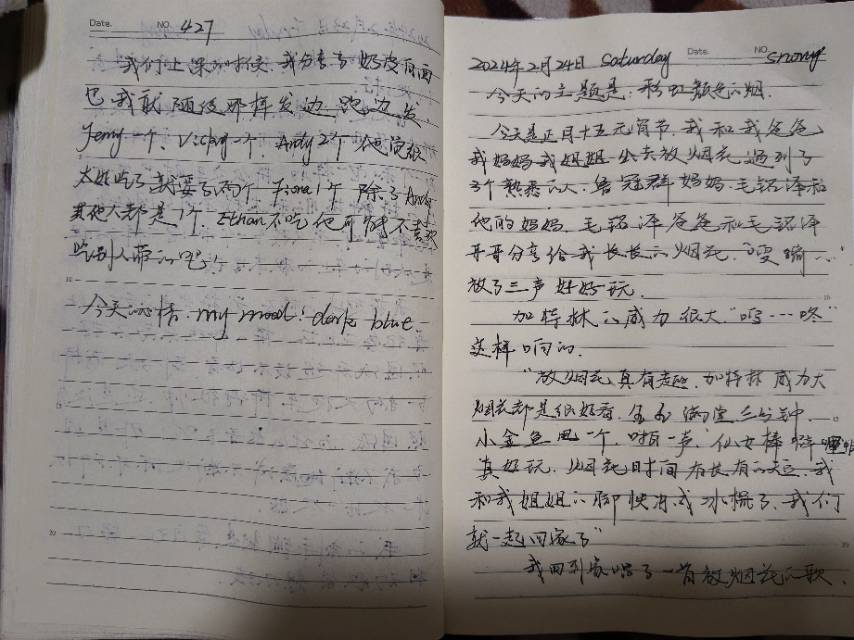 Date.
NO. 427
我们上课的时候,我分享了奶皮面面
包,我就随便那样发边跑边发
Jenny一个、Vichy一个、Andy 2个他说
太好吃了就要了两个 Fiona 1个 除了Andy
其他人都是1个. Ethan不吃他可能不喜欢
吃别人带的吧!
今天心情 my mood: dark blue.
2024年2月24日 Saturday Date. NO. snowy
今天的主题是:彩虹颜色的烟.
今天是正月十五元宵节,我和我爸爸,
我妈妈我姐姐出去放烟花遇到了
3个熟悉的人,鲁冠群妈妈、毛铭泽和
他的妈妈,毛铭泽爸爸和毛铭泽
哥哥分享给我长长的烟花,
放了三声好好玩.
加特林的威力很大,"呜……咚"
这样响的.
"放烟花真有趣,加特林威力大
烟花都是很好看,金玉满堂三分钟。
小金鱼甩一个,啪一声,仙女棒
真好玩,烟花时间有长有的短,我
和我姐姐的脚快冻成冰棍了,我们
就一起回家了"
我回到家唱了一首放烟花的歌.